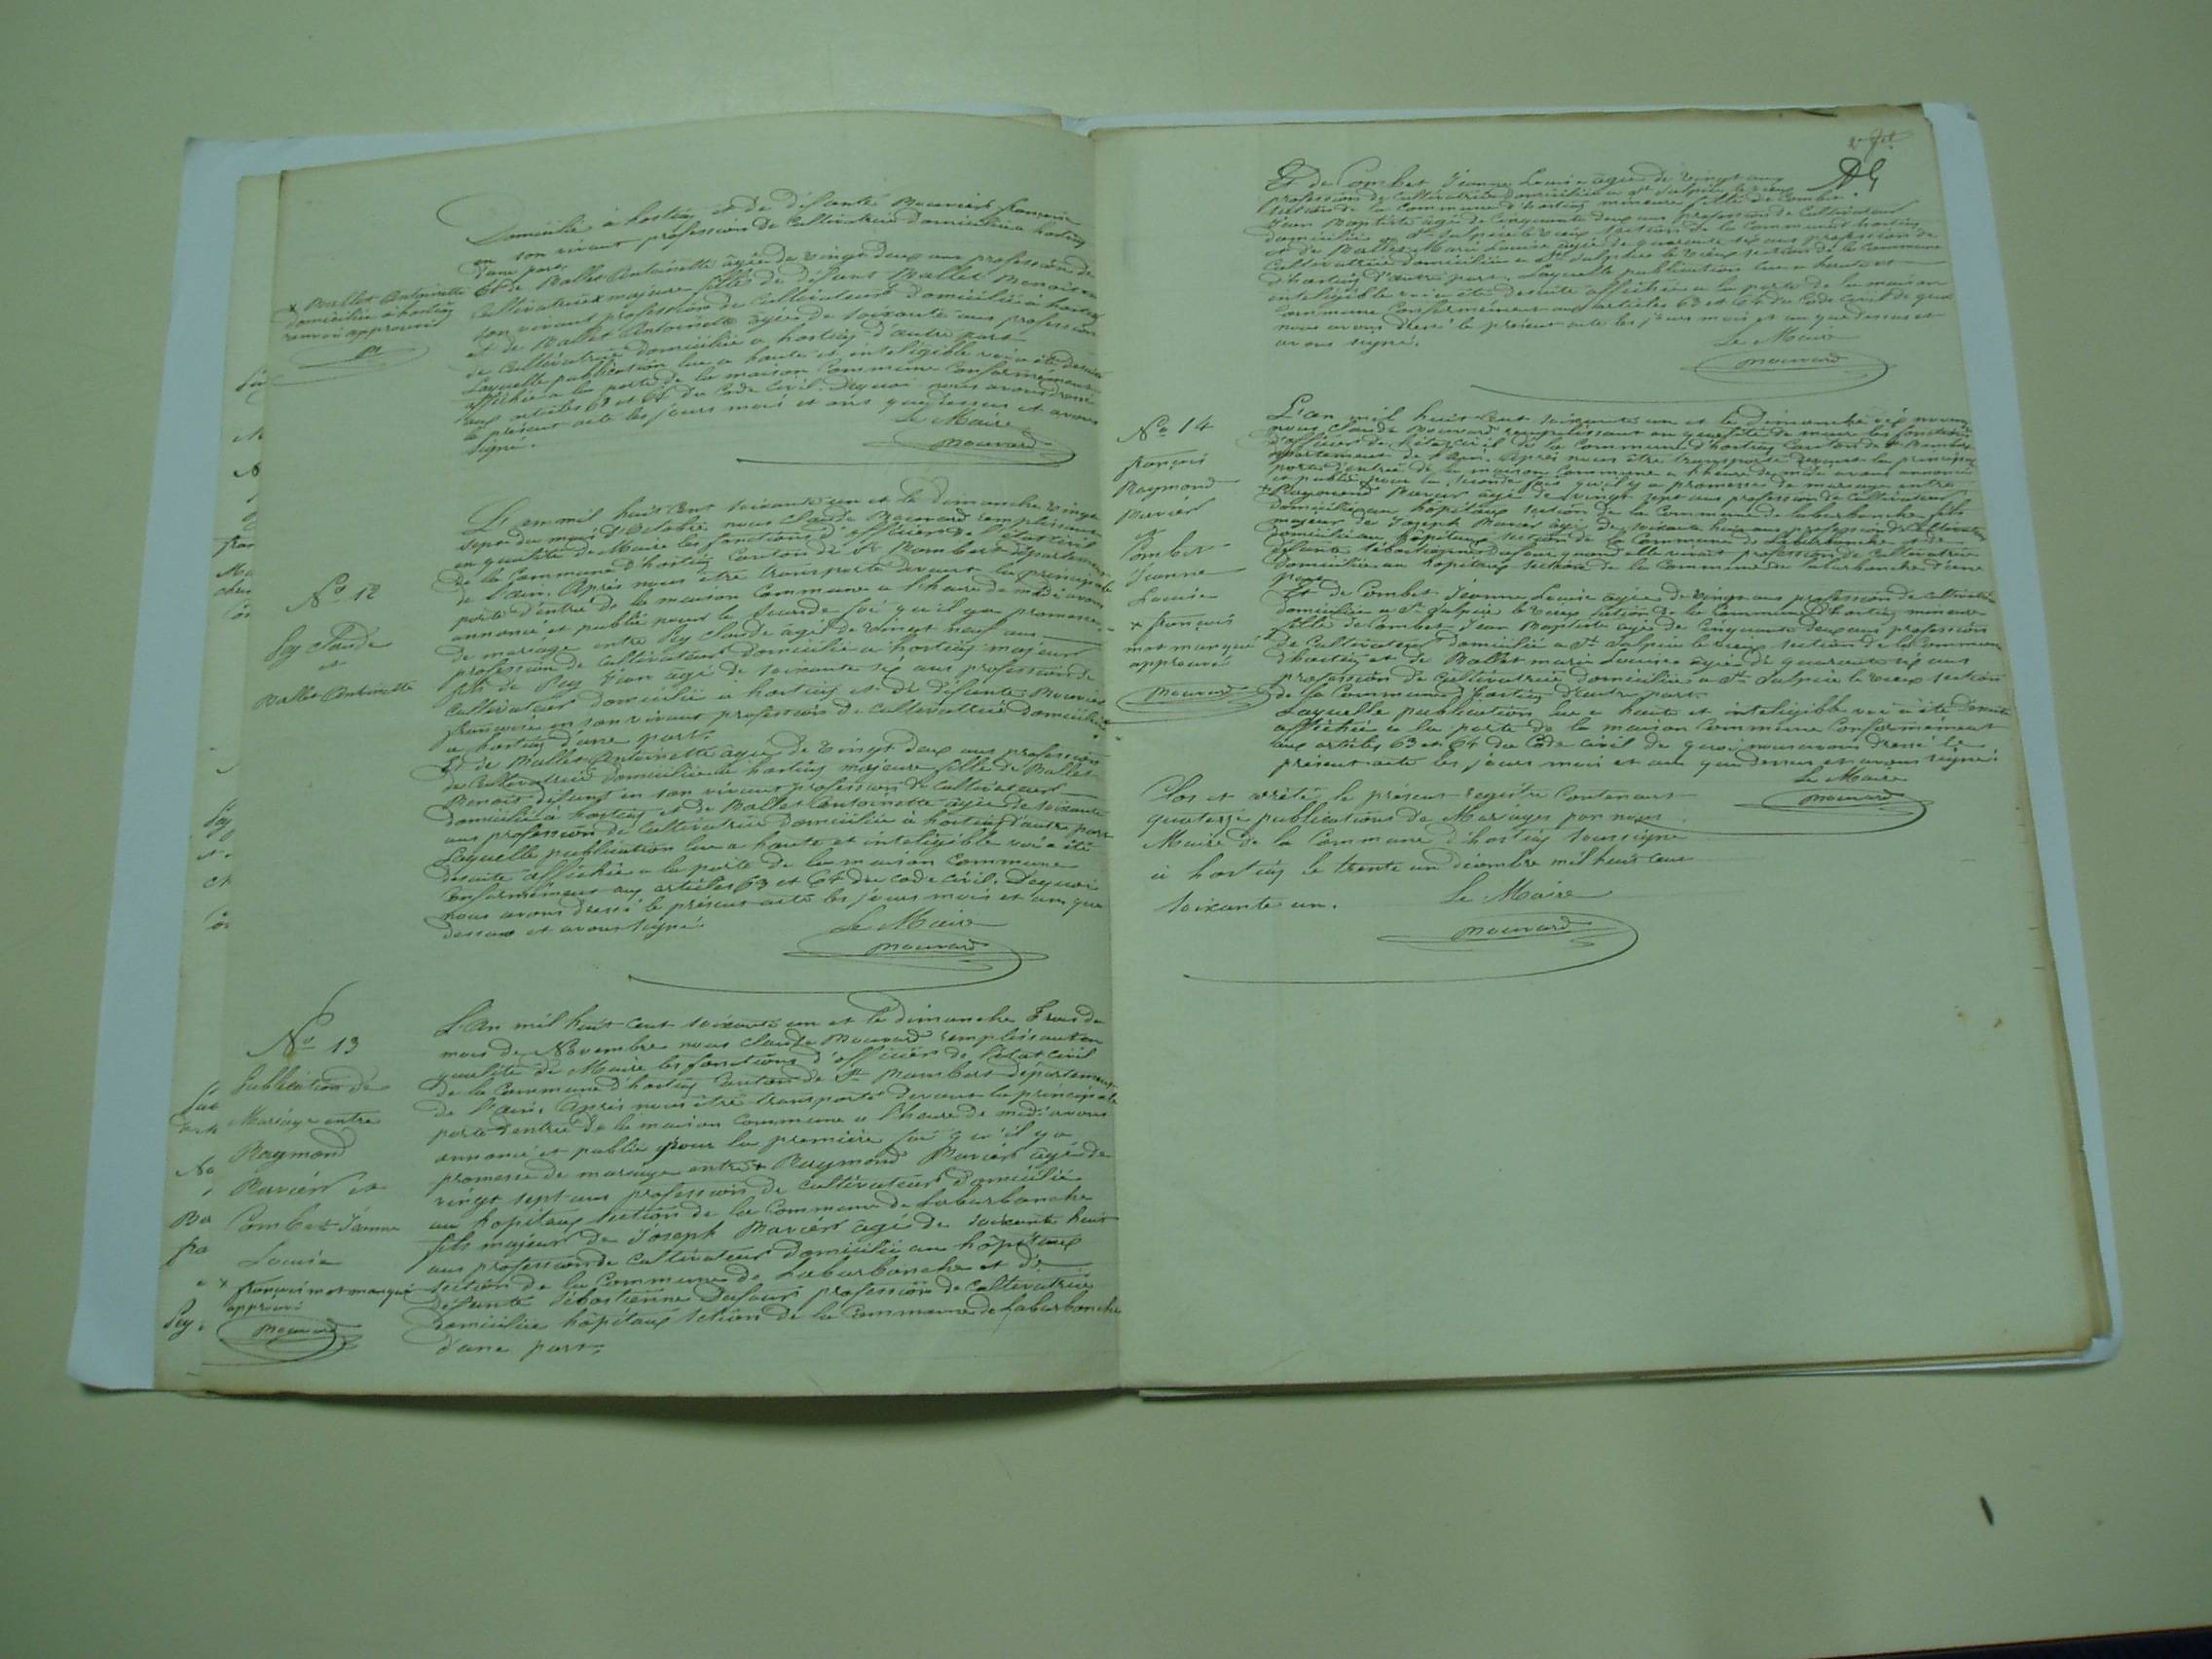 Domicilié à hostiaz et de défunte Mouvier françoise
en son vivant profession de Cultivatrice domiciliée à hostiaz
d'une part.
Et de Ballet Antoinette âgée de vingt deux ans profession de
Cultivatrice x majeure fille de défunt Ballet Benoit en
son vivant profession de Cultivateur domicilié à hostiaz
et de Ballet Antoinette âgée de soixante ans profession
de Cultivatrice domiciliée a hostiaz d'autre part
Laquelle publication lue a haute et inteligible voix a été desuite
affichée a la porte de la maison Commune Conformément
aux articles 63 et 64 du Code Civil. Dequoi nous avons dressé
le présent acte les jours mois et ans que dessus et avons
signé.
Le Maire
mouvard
x Ballet Antoinette
domiciliée a hostiaz
renvoi approuvé
No 12
Pey Claude
et
Ballet Antoinette
L'an mil huit cent soixante un et le dimanche vingt
sept du mois d'Octobre nous Claude Mouvard remplissant
en qualité de Maire les fonctions d'officier de l'état civil
de la Commune d'hostiaz Canton de St Rambert département
de l'ain. Après nous être transporté devant la principale
porte d'entrée de la maison Commune a l'heure de midi avons
annoncé et publié pour la seconde foi qu'il y a promesse
de mariage entre Pey Claude âgé de vingt neuf ans
profession de Cultivateur domicilié a hostiaz majeur
fils de Pey Jean agé de soixante six ans profession de
Cultivateur domicilié a hostiaz et de défunte Mouvier
françoise en son vivant profession de Cultivatrice domiciliée
a hostiaz d'une part.
Et de Ballet Antoinette âgée de vingt deux ans profession
de Cultivatrice domiciliée à hostiaz majeure fille de Ballet
Benoit défunt en son vivant profession de Cultivateur
domicilié a hostiaz et de Ballet Antoinette âgée de soixante
ans profession de Cultivatrice domiciliée à hostiaz d'autre part
Laquelle publication lue a haute et inteligible voix a été
desuite affichée a la porte de la maison Commune
Conformément aux articles 63 et 64 du code civil. Dequoi
nous avons dressé le présent acte les jours mois et ans que
dessus et avons signé.
Le Maire
mouvard
No 13
Publication de
Mariage entre
Raymond
Ravier et
Combet Jeanne
Louise
x françois mot manqué
approuvé
mouvard
L'an mil huit cent soixante un et le dimanche trois du
mois de Novembre nous Claude Mouvard remplissant en
qualité de Maire les fonctions d'officier de l'état civil
de la Commune d'hostiaz Canton de St Rambert département
de l'ain. Après nous être transporté devant la principale
porte d'entrée de la maison Commune a l'heure de midi avons
annoncé et publié pour la première foi qu'il y a
promesse de mariage entre x Raymond Ravier âgé de
vingt sept ans profession de Cultivateur domicilié
au hopitaux section de la Commune de Laburbanche
fils majeur de Joseph Ravier âgé de soixante huit
ans profession de Cultivateur domicilié au hôpitaux
section de la Commune de Laburbanche et de
défunte Sébastienne Dufour profession de Cultivatrice
domiciliée hôpitaux section de la Commune de Laburbanche
d'une part.
Et de Combet Jeanne Louise âgée de vingt ans
profession de Cultivatrice domiciliée a St Sulpice le vieux
section de la Commune d'hostiaz mineure fille de Combet
Jean Baptiste âgé de Cinquante deux ans profession de Cultivateur
domicilié a St Sulpice le vieux section de la Commune d'hostiaz
et de Ballet Marie Louise âgée de quarante six ans profession de
Cultivatrice domiciliée a St Sulpice le vieux section de la Commune
d'hostiaz d'autre part. Laquelle publication lue a haute et
inteligible voix a été desuite affichée a la porte de la maison
Commune Conformément aux articles 63 et 64 du Code Civil de quoi
nous avons dressé le présent acte les jours mois et an que dessus et
avons signé.
Le Maire
mouvard
No 14
françois
Raymond
Ravier
et
Combet
Jeanne
Louise
x françois
mot manqué
approuvé
mouvard
L'an mil huit cent soixante un et le dimanche dix novembre
nous Claude Mouvard remplissant en qualité de maire les fonctions
d'officier de l'état civil de la Commune d'hostiaz Canton de St Rambert
département de l'ain. Après nous être transporté devant la principale
porte d'entrée de la maison Commune a l'heure de midi avons annoncé
et publié pour la seconde foi qu'il y a promesse de mariage entre
x Raymond Ravier âgé de vingt sept ans profession de Cultivateur
domicilié au hôpitaux section de la Commune de Laburbanche fils
majeur de Joseph Ravier âgé de soixante huit ans profession de Cultivateur
domicilié au hôpitaux section de la Commune de Laburbanche et de
défunte Sébastienne Dufour quand elle vivait profession de Cultivatrice
domiciliée au hopitaux section de la Commune de Laburbanche d'une
part
Et de Combet Jeanne Louise âgée de vingt ans profession de Cultivatrice
domiciliée a St Sulpice le vieux section de la Commune d'hostiaz mineure
fille de Combet Jean Baptiste âgé de Cinquante deux ans profession
de Cultivateur domicilié a St Sulpice le vieux section de la Commune
d'hostiaz et de Ballet marie Louise âgée de quarante six ans
profession de Cultivatrice domiciliée a St Sulpice le vieux section
de la Commune d'hostiaz d'autre part.
Laquelle publication lue a haute et inteligible voix a été desuite
affichée a la porte de la maison Commune Conformément
aux articles 63 et 64 du Code civil de quoi nous avons dressé le
présent acte les jours mois et an que dessus et avons signé.
Le Maire
mouvard
Clos et arrêté le présent registre Contenant
quatorze publications de Mariages par nous
Maire de la Commune d'hostiaz soussigné
à hostiaz le trente un décembre mil huit cent
soixante un.
Le Maire
mouvard